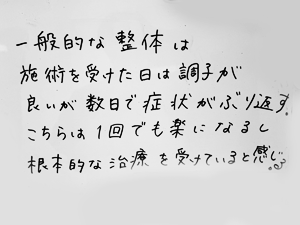 一般的な整体は
施術を受けた日は調子が
良いが数日で症状がぶり返す。
こちらは1回でも楽になるし
根本的な治療を受けていると感じる。